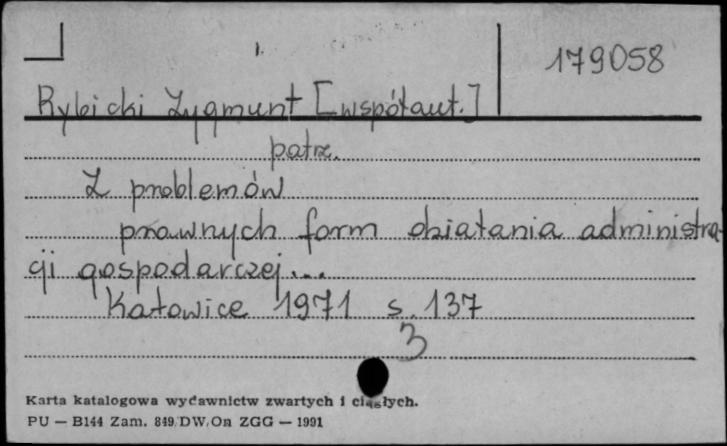 1.
179058
Rybicki Zygmunt [współaut.]
patrz.
Z problemów
prawnych form działania administra-
cji gospodarczej...
Katowice 1971 s. 137
3
Karta katalogowa wydawnictw zwartych i ciągłych.
PU — B144 Zam. 849/DW/On ZGG — 1991